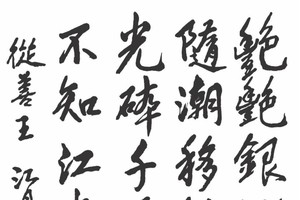 艷艷銀
隨潮移
光碎千
不知江
從善王 江月